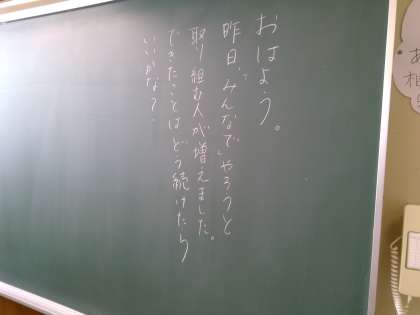 おはよう。
昨日、みんなでやろうと
取り組む人が増えました。
できたことはどう続けたら
いいかな？